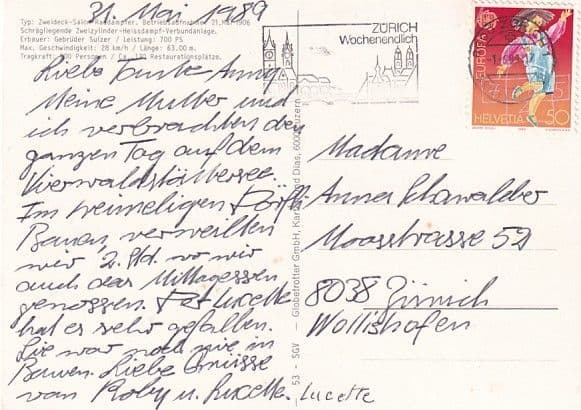 31. Mai 1989
Typ: Zweideck-Salon-Raddampfer, Betriebsaufnahme 21. Mai 1906
Schrägliegende Zweizylinder-Heissdampf-Verbundanlage.
Erbauer: Gebrüder Sulzer / Leistung: 700 PS
Max. Geschwindigkeit: 28 km / Länge: 63.00 m.
Tragkraft: 800 Personen / Ca. Restaurationsplätze.
Liebe Tante Anny
Meine Mutter und
ich verbrachten den
ganzen Tag auf dem
Vierwaldstättersee.
Im heimeligen Dörfli
Bauen, verweilten
wir 2 Std. wo wir
auch das Mittagessen
genossen. Lucette
hat es sehr gefallen.
Sie war noch nie in
Bauen. Liebe Grüsse
von Roby u. Lucette.
Lucette
53 - SGV - Globetrotter GmbH, Karten und Dias, 6000 Luzern
ZÜRICH
Wochenendlich
EUROPA
HELVETIA 50
Madame
Anna Schawalder
Moosstrasse 52
8038 Zürich
Wollishofen